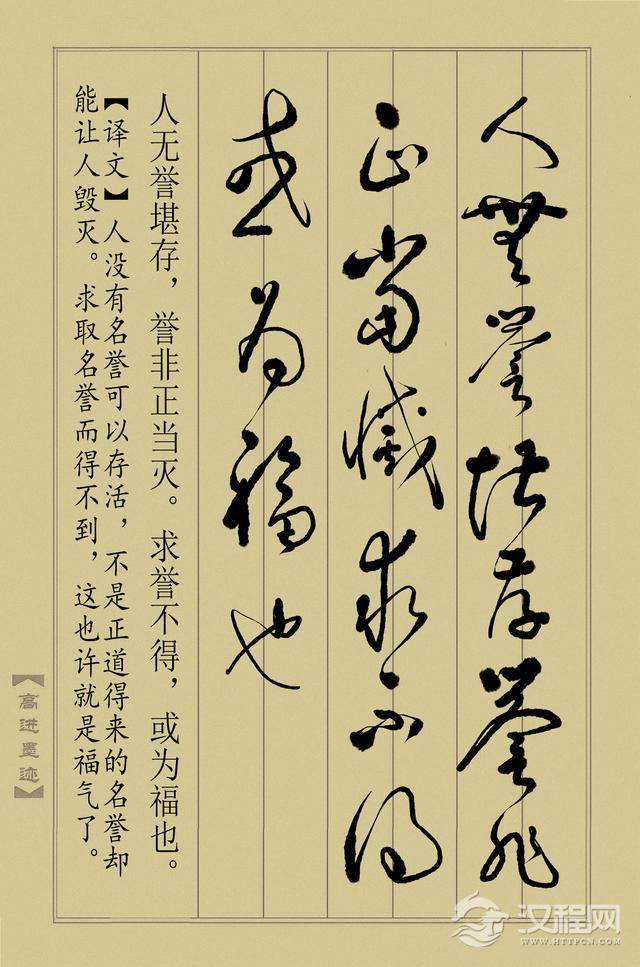 人無譽堪存譽非
正當滅求不得
或為福也
人无誉堪存，誉非正当灭。求誉不得，或为福也。
【译文】人没有名誉可以存活，不是正道得来的名誉却
能让人毁灭。求取名誉而得不到，这也许就是福气了。
【高进墨迹】
汉程网
WWW.HTTPCN.COM